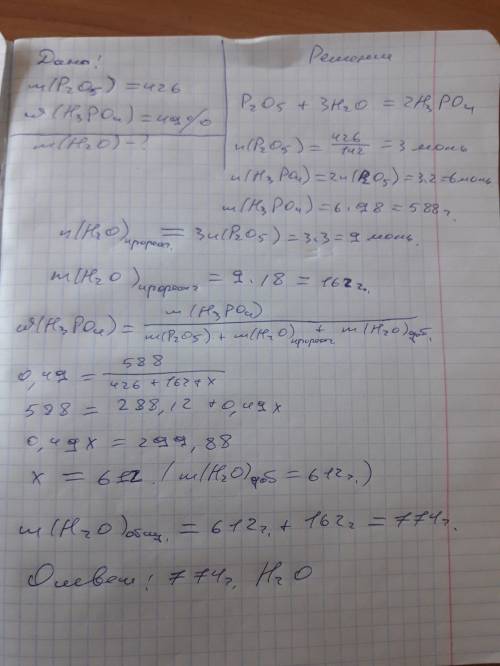 Дано:
m(P₂O₅) = 426
ω(H₃PO₄) = 49%
m(H₂O) - ?
Решение
P₂O₅ + 3H₂O = 2H₃PO₄
n(P₂O₅) = 426/142 = 3 моль
n(H₃PO₄) = 2n(P₂O₅) = 3·2 = 6 моль
m(H₃PO₄) = 6·98 = 588 г.
n(H₂O)прореаг. = 3n(P₂O₅) = 3·3 = 9 моль.
m(H₂O)прореаг = 9·18 = 162 г.
ω(H₃PO₄) = m(H₃PO₄) / m(P₂O₅) + m(H₂O)прореаг + m(H₂O)доб.
0,49 = 588 / 426 + 162 + x
588 = 288,12 + 0,49x
0,49x = 299,88
x = 612 (m(H₂O)доб = 612 г.)
m(H₂O)общ. = 612 г. + 162 г = 774 г.
Ответ: 774 г. H₂O